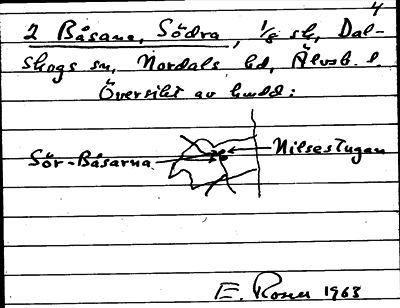 4
2 Båsane, Södra, 1/8 sk, Dal-
skogs sn, Nordals hd, Älvsb. l.
Översikt av hmdd:
Sör-Båsarna Nilsestugan
E. Rosen 1963